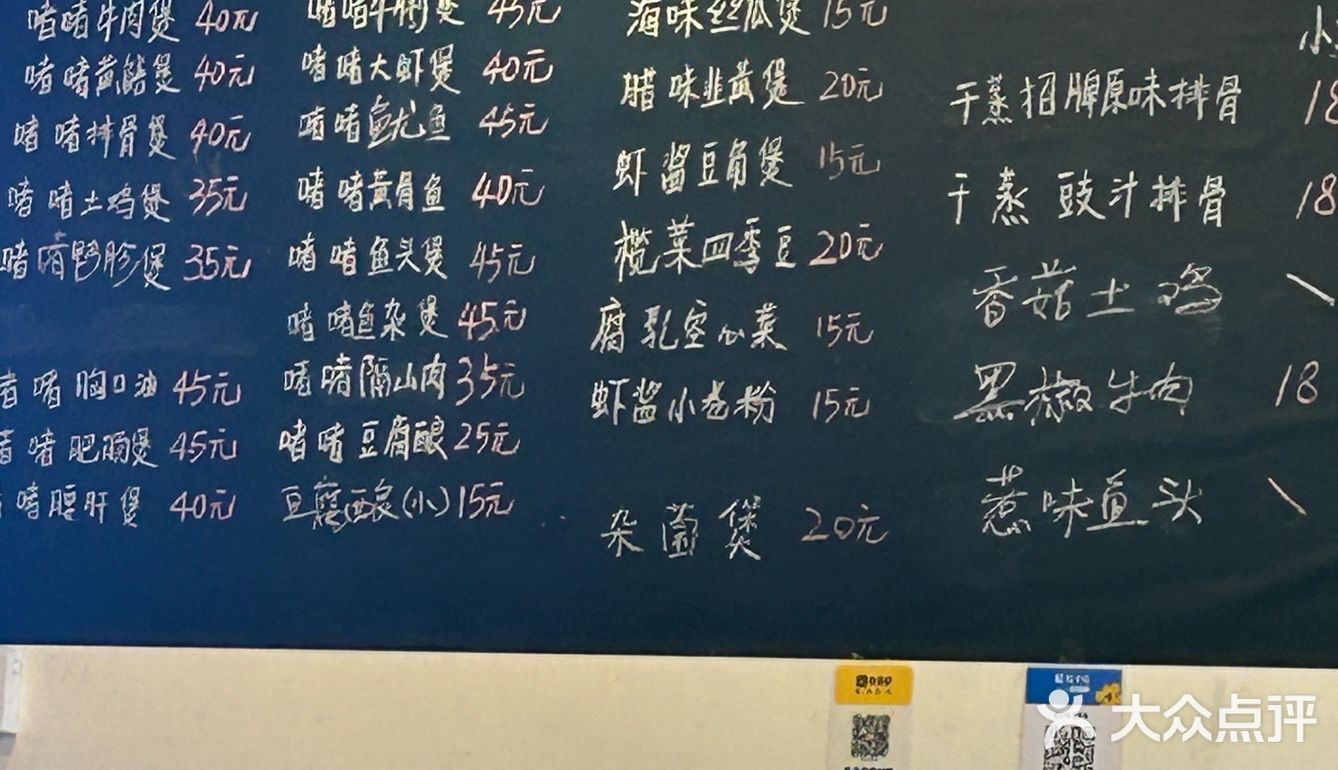 啫啫牛肉煲 40元
啫啫黄鳝煲 40元
啫啫排骨煲 40元
啫啫土鸡煲 35元
35元
啫啫胸口油 45元
啫啫肥肠煲 45元
啫腰肝煲 40元
45元
啫啫大虾煲 40元
啫啫鱿鱼 45元
啫啫黄骨鱼 40元
啫啫鱼头煲 45元
啫啫鱼杂煲 45元
啫啫隔山肉 35元
啫啫豆腐酿 25元
豆腐酿(小) 15元
海味丝瓜煲 15元
腊味韭黄煲 20元
虾酱豆角煲 15元
榄菜四季豆 20元
腐乳空心菜 15元
虾酱小卷粉 15元
杂菌煲 20元
小
干蒸招牌原味排骨 18
干蒸豉汁排骨 18
香菇土鸡 \
黑椒牛肉 18
惹味鱼头 \
大众点评